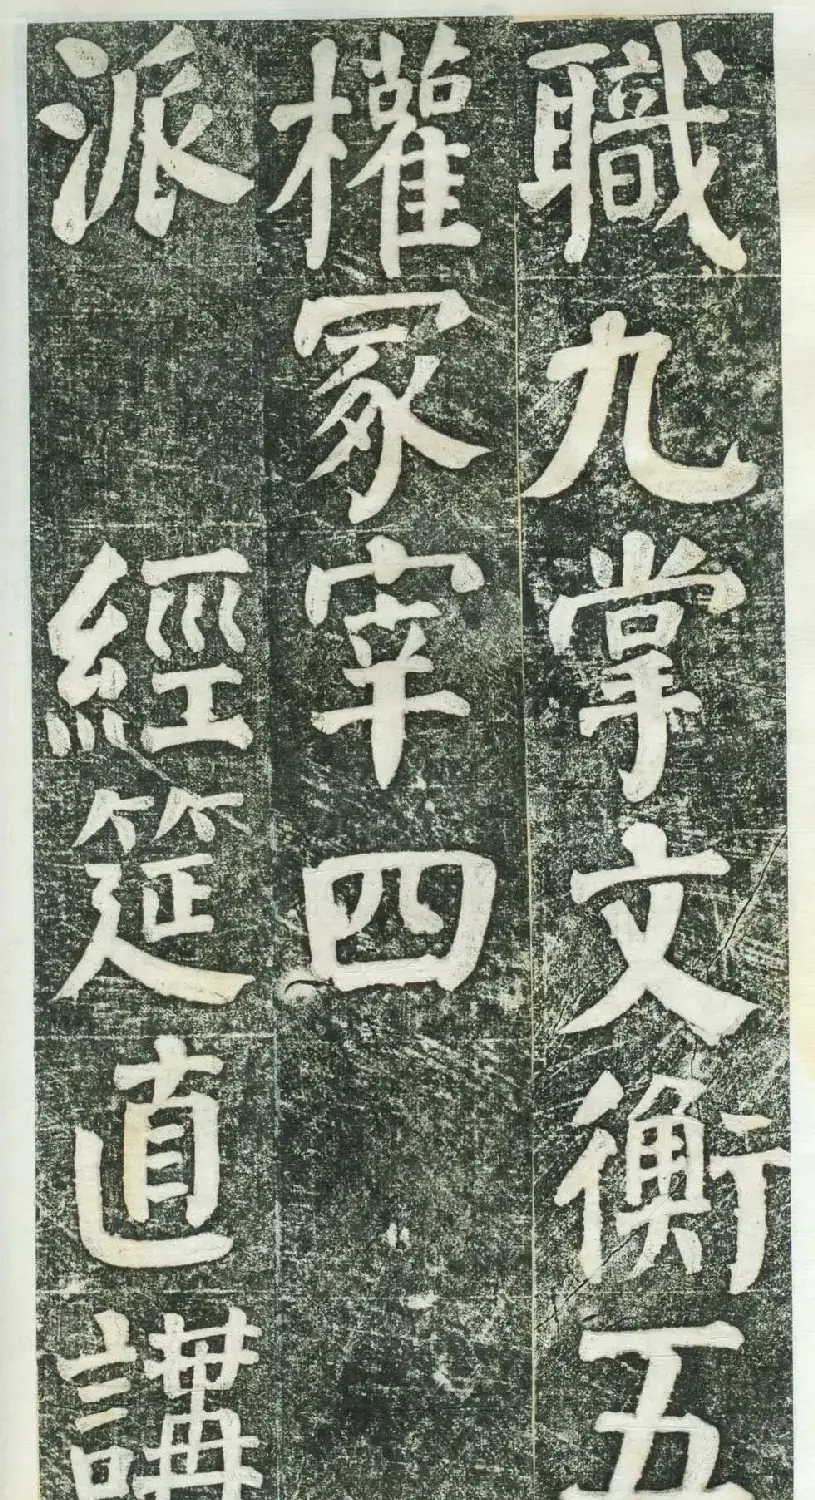 職九掌文衡五
權冢宰四
派 經筵直講